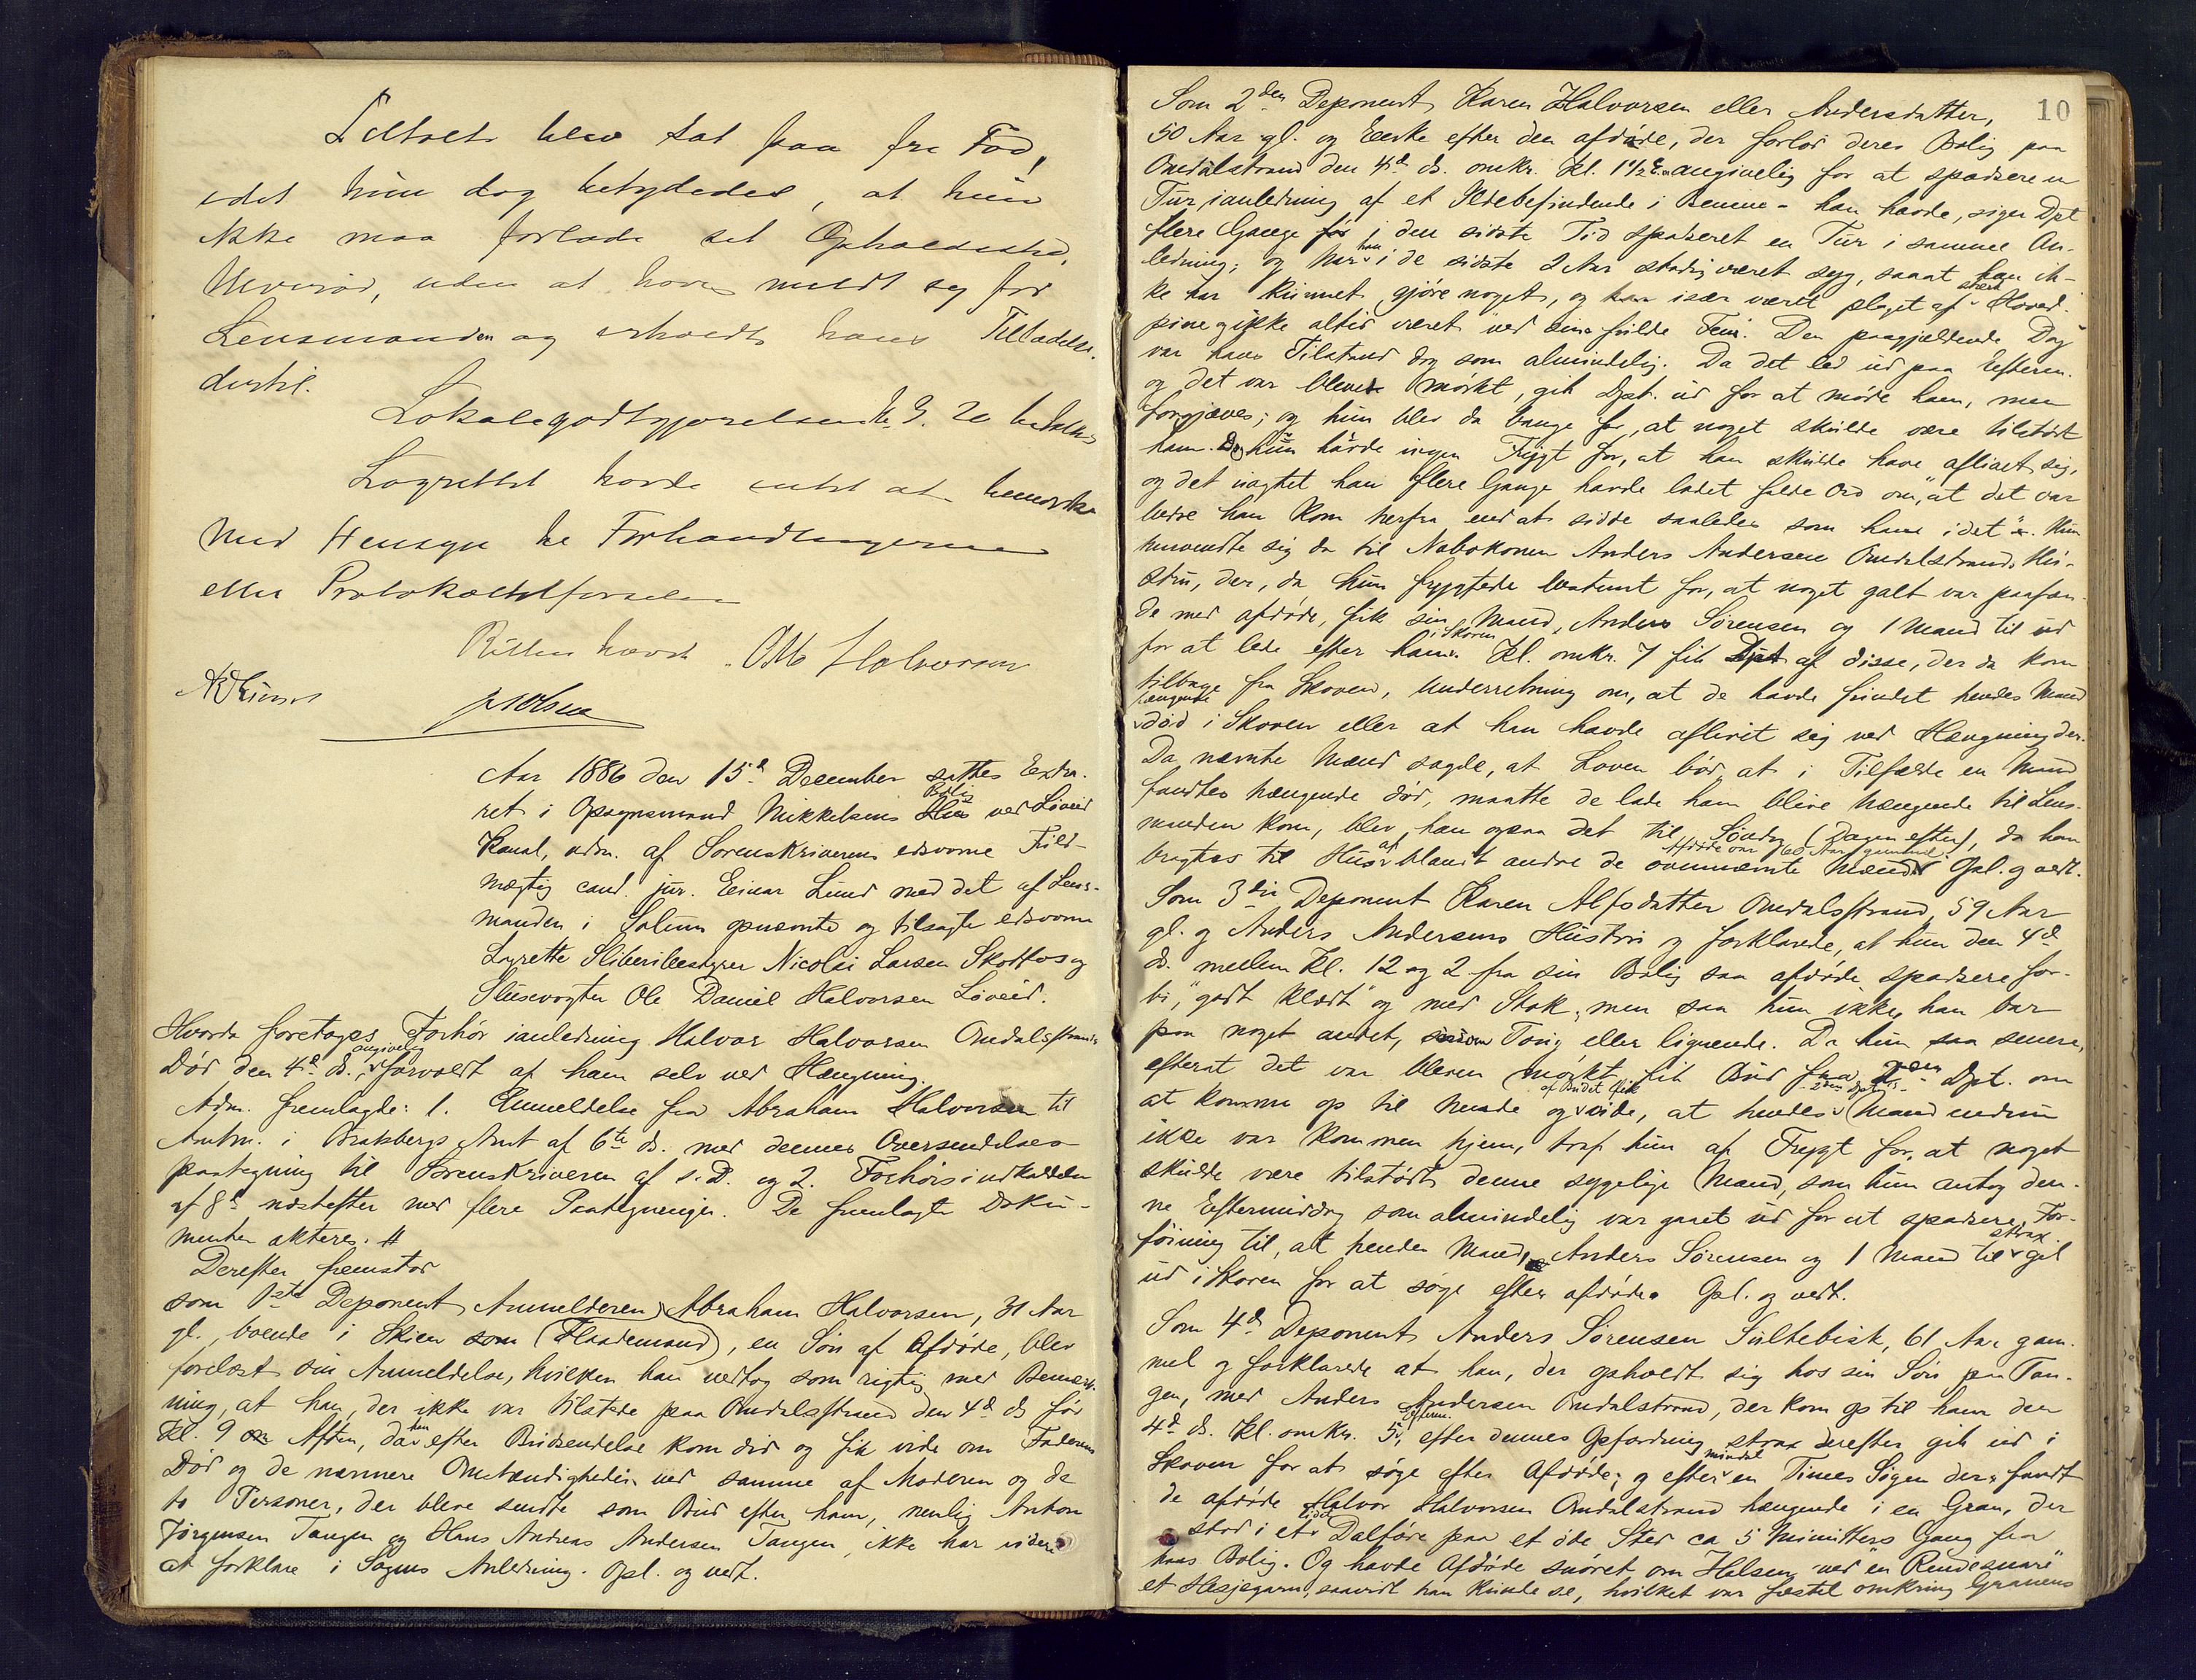 Tiltalte blev sat paa fri Fod,
idet hun dog betydedes, at hun
ikke maa forlade sit Opholdssted,
uden at have meldt sig for
Lensmanden og erholdt hans Tilladelse
dertil.
Lokalegodtgjørelsen Kr. 3.20 betaltes
Lagrettet havde intet at bemærke
med Hensyn til Forhandlingerne
eller Protokoltilførselen
Retten hævet. Halvorsen
Aar 1886 den 15d December sattes Extra-
ret i Opsynsmand Mikkelsens Bolig ved Løveid
Kanal, adm. af Sorenskriverens edsvorne Fuld-
mægtig cand. jur. Einar Lund med det af Lens-
manden i Solum opnævnte og tilsagte edsvorne
Lagrette Sliberibestyrer Nicolai Larsen Skotfos og
Slusevogter Ole Daniel Halvorsen Løveid.
Hvorda foretoges Forhør ianledning Halvor Halvorsen Omdalsstrands
Død den 4d ds., angivelig forvoldt af ham selv ved Hængning.
Adm. fremlagde: 1. Anmeldelse fra Abraham Halvorsen til
Amtm. i Bratsbergs Amt af 6te ds. med dennes Oversendelses
paategning til Sorenskriveren af s.D. og 2. Forhørsindkaldelse
af 8d næstefter med flere Paategninger. De fremlagte Doku-
menter akteres. #
Derefter fremstod
som 1ste Deponent Anmelderen Abraham Halvorsen, 31 Aar
gl., boende i Skien som (Flaademand), en Søn af Afdøde, blev
forelæst sin Anmeldelse, hvilken han vedtog som rigtig med Bemærk-
ning, at han, der ikke var tilstede paa Omdalsstrand den 4d ds før
Kl. 9 Aften, da han efter Budsendelse kom did og fik vide om Faderens
Død og de nærmere Omstændigheder ved samme af Moderen og de
to Personer, der bleve sendte som Bud efter ham, nemlig Anton
Jørgensen Tangen og Hans Andreas Andersen Tangen, ikke har videre
at forklare i Sagens Anledning. Opl. og vedt.
10
Som 2den Deponent Karen Halvorsen eller Andersdatter,
50 Aar gl. og Enke efter den afdøde, der forlod deres Bolig paa
Omdalstrand den 4d ds. omkr. Kl. 1½ E. angivelig for at spadsere en
Tur ianledning af et Ildebefindende i Benene - han havde, siger Dpt
flere Gange i den sidste Tid spadseret en Tur i samme An-
ledning; og har han i de sidste 2 Aar stadig været syg, saaat han ik-
ke har kunnet gjøre noget, og især været plaget af stærk Hoved-
pine og ikke altid været ved sin fulde Fem. Den paagjældende Dag
var hans Tilstand dog som almindelig. Da det led ud paa Efterm.
og det var blevet mørkt, gik Dpt. ud for at møde ham, men
forgjæves; og hun blev da bange for, at noget skulde være tilstødt
ham. Dog hun havde ingen Frygt for, at han skulde have aflivet sig,
og det uagtet han flere Gange havde ladet falde Ord om, "at det var
bedre han kom herfra end at sidde saaledes som han i det". Hun
henvendte sig da til Nabokonen Anders Andersen Omdalstrands Hu-
stru, der, da hun frygtede bestemt for, at noget galt var paafær-
de med afdøde, fik sin Mand, Anders Sørensen og 1 Mand til ud
for at lede efter ham i Skoven. Kl. omkr. 7 fik Dpt af disse, der da kom
tilbage fra Skoven, Underretning om, at de havde fundet hendes Mand
hængende død i Skoven eller at han havde aflivet sig ved Hængning der.
Da nævnte Mænd sagde, at Loven bød at i Tilfælde en Mand
fandtes hængende død, maatte de lade ham blive hængende til Lens-
manden kom, blev han ogsaa det til Søndag (Dagen efter), da han
bragtes til Huse af blandt andre de ovennævnte Mænd. Afdøde var 60 Aar gammel. Opl. og vedt.
Som 3die Deponent Karen Alfsdatter Omdalsstrand, 59 Aar
gl. og Anders Andersens Hustru og forklarede, at hun den 4d
ds. mellem Kl. 12 og 2 fra sin Bolig saa afdøde spadsere for-
bi, "godt klædt" og med Stok, men saa hun ikke, han bar
paa noget andet, saasom Toug eller lignende. Da hun saa senere,
efterat det var bleven mørkt fik Bud fra 2den Dpt. om
at komme op til hende og af Budet fik vide, at hendes 2den Dpts Mand endnu
ikke var kommen hjem, traf hun af Frygt for, at noget
skulde være tilstødt denne sygelige Mand, som hun antog den-
ne Eftermiddag som almindelig var gaaet ud for at spadsere, For-
føining til, at hendes Mand, Anders Sørensen og 1 Mand til strax gik
ud i Skoven for at søge efter afdøde. Opl. og vedt.
Som 4d Deponent Anders Sørensen Sultebisk, 61 Aar gam-
mel og forklarede at han, der opholdt sig hos sin Søn paa Tan-
gen, med Anders Andersen Omdalstrand, der kom op til ham den
4d ds. Kl. omkr. 5 Efterm., efter dennes Opfordring strax derefter gik ud i
Skoven for at søge efter Afdøde; og efter mindst en Times Søgen der fandt
de afdøde Halvor Halvorsen Omdalstrand hængende i en Gran, der
stod i et lidet Dalføre paa et øde Sted ca 5 Minutters Gang fra
hans Bolig. Og havde Afdøde snøret om Halsen ved "en Rendesnare"
et Hesjegarn, saavidt han kunde se, hvilket var fæstet omkring Granens